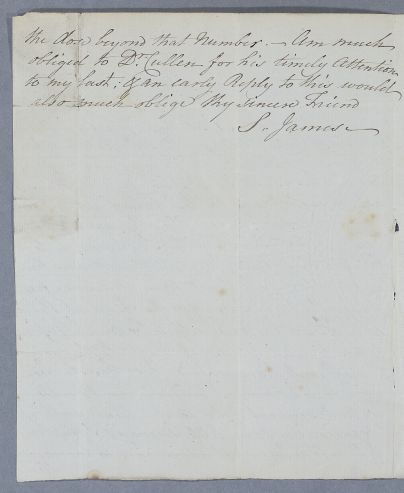 the dose beyond that Number. – Am much
obliged to Dr. Cullen for his timely Attention
to my last; & an early Reply to this would
also much oblige thy sincere Friend
S. James